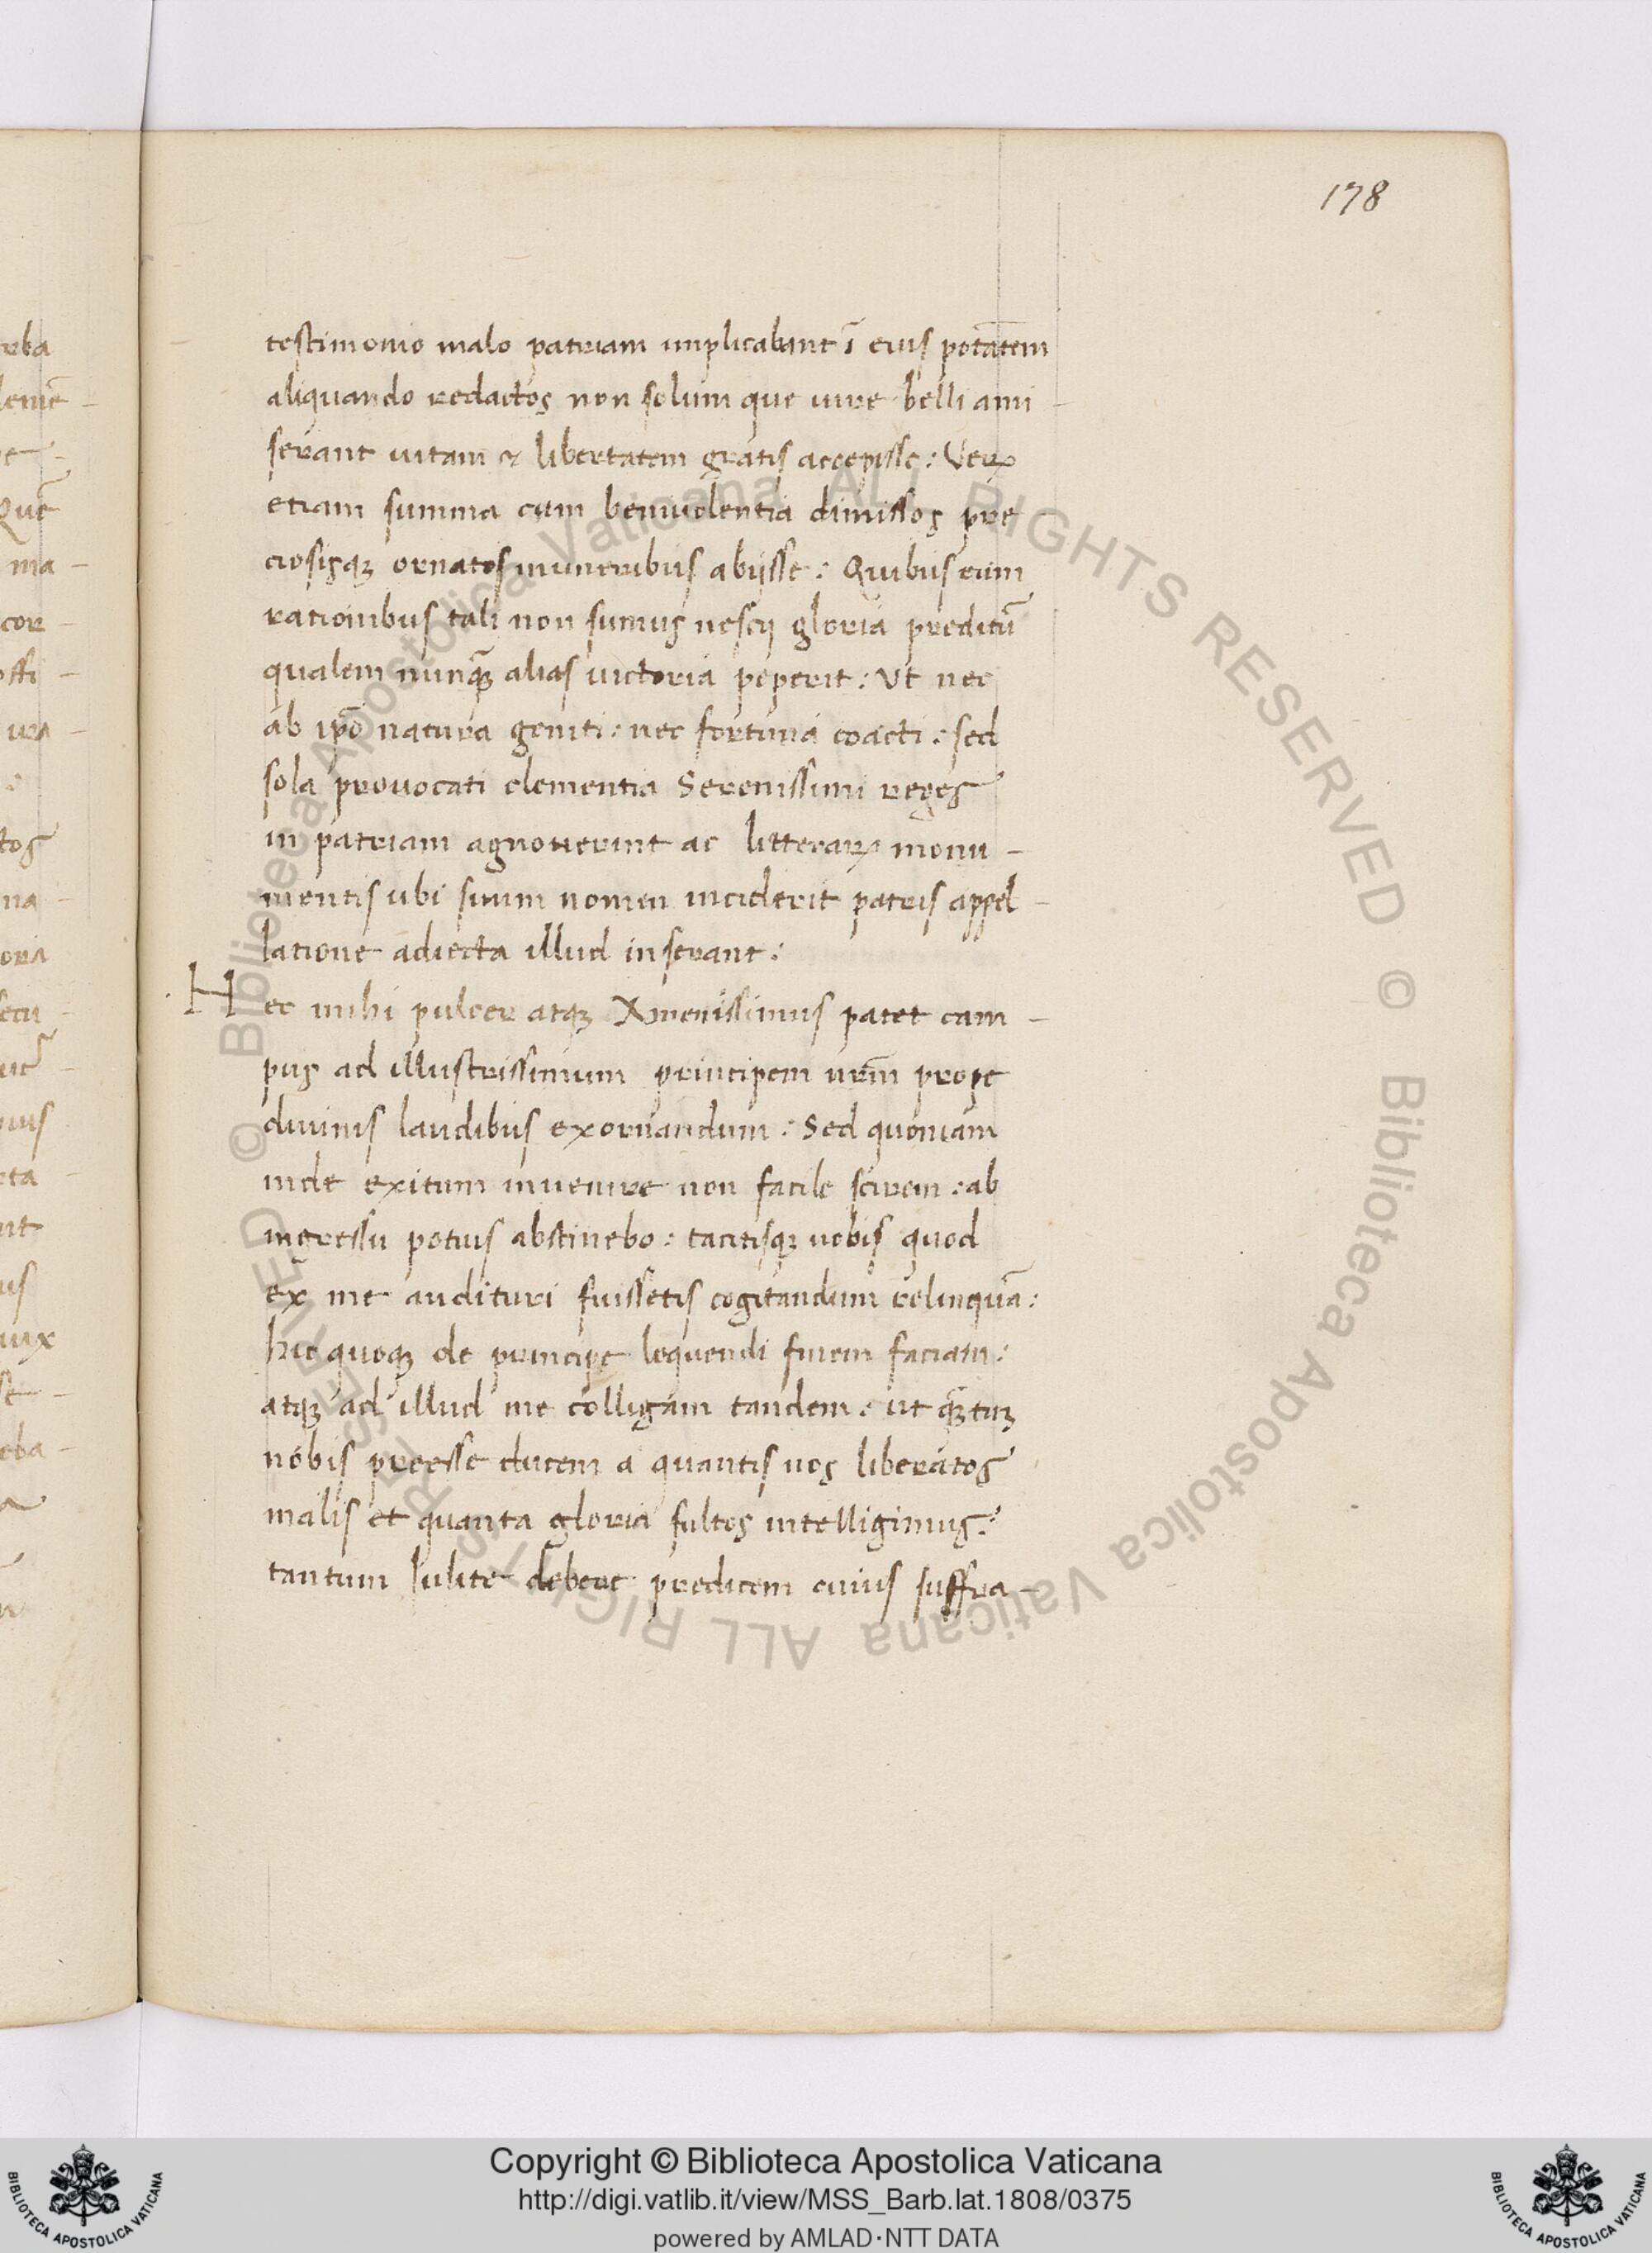 178
testimonio malo patriam implicabant ī eius potātem
aliquando redactos non solum que iure belli ami
serant uitam & libertatem gratis accepisse: Veꝝ
etiam summa cum beniuolentia dimissos pre
ciosisqꝫ ornatos muneribus abijsse: Quibus eum
rationibus tali non sumus nescij gloria preditū
qualem nunqꝫ̄ alias uictoria peperit: Ut nec
ab ip̄o natura geniti: nec fortuna coacti: sed
sola prouocati clementia Serenissimi reges
in patriam agnouerint ac litteraꝝ monu-
mentis ubi suum nomen inciderit patris appel-
latione adiecta illud inserant:
Hec mihi pulcer atqꝫ Amenissimus patet cam-
pus ad illustrissimum principem ur̄m prope
diuinis laudibus exornandum: Sed quoniam
inde exitum inuenire non facile scirem: ab
ingressu potius abstinebo: tacitisqꝫ uobis quod
ex me audituri fuissetis cogitandum relinquā:
hic quoqꝫ de principe loquendi finem faciam:
atqꝫ ad illud me colligam tandem: ut qꝫ̄tuꝫ
nobis preesse ducem a quantis uos liberatos
malis et quanta gloria fultos intelligimus:
tantum Iulite debere predicem cuius suffra-
Copyright © Biblioteca Apostolica Vaticana
http://digi.vatlib.it/view/MSS_Barb.lat.1808/0375
powered by AMLAD·NTT DATA